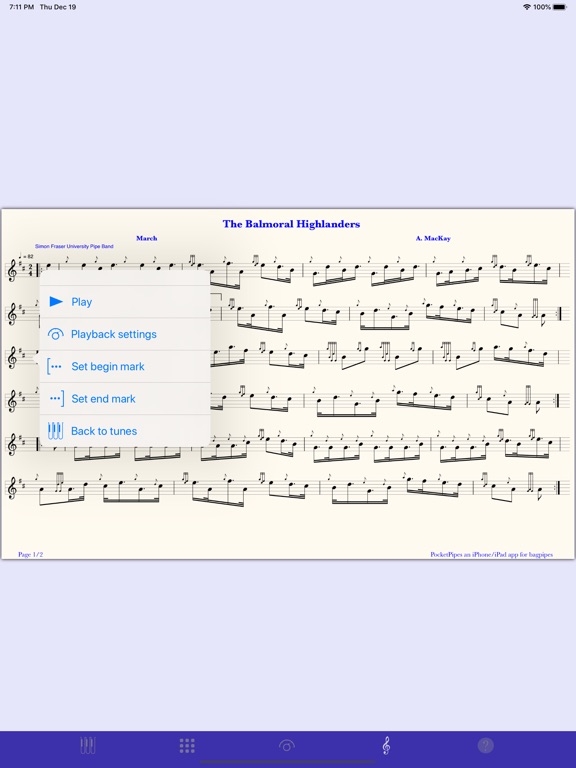 7:11 PM Thu Dec 19
100%
The Balmoral Highlanders
March
A. MacKay
Simon Fraser University Pipe Band
= 82
2
4
Play
Playback settings
Set begin mark
Set end mark
Back to tunes
Page 1/2
PocketPipes an iPhone/iPad app for bagpipes
?